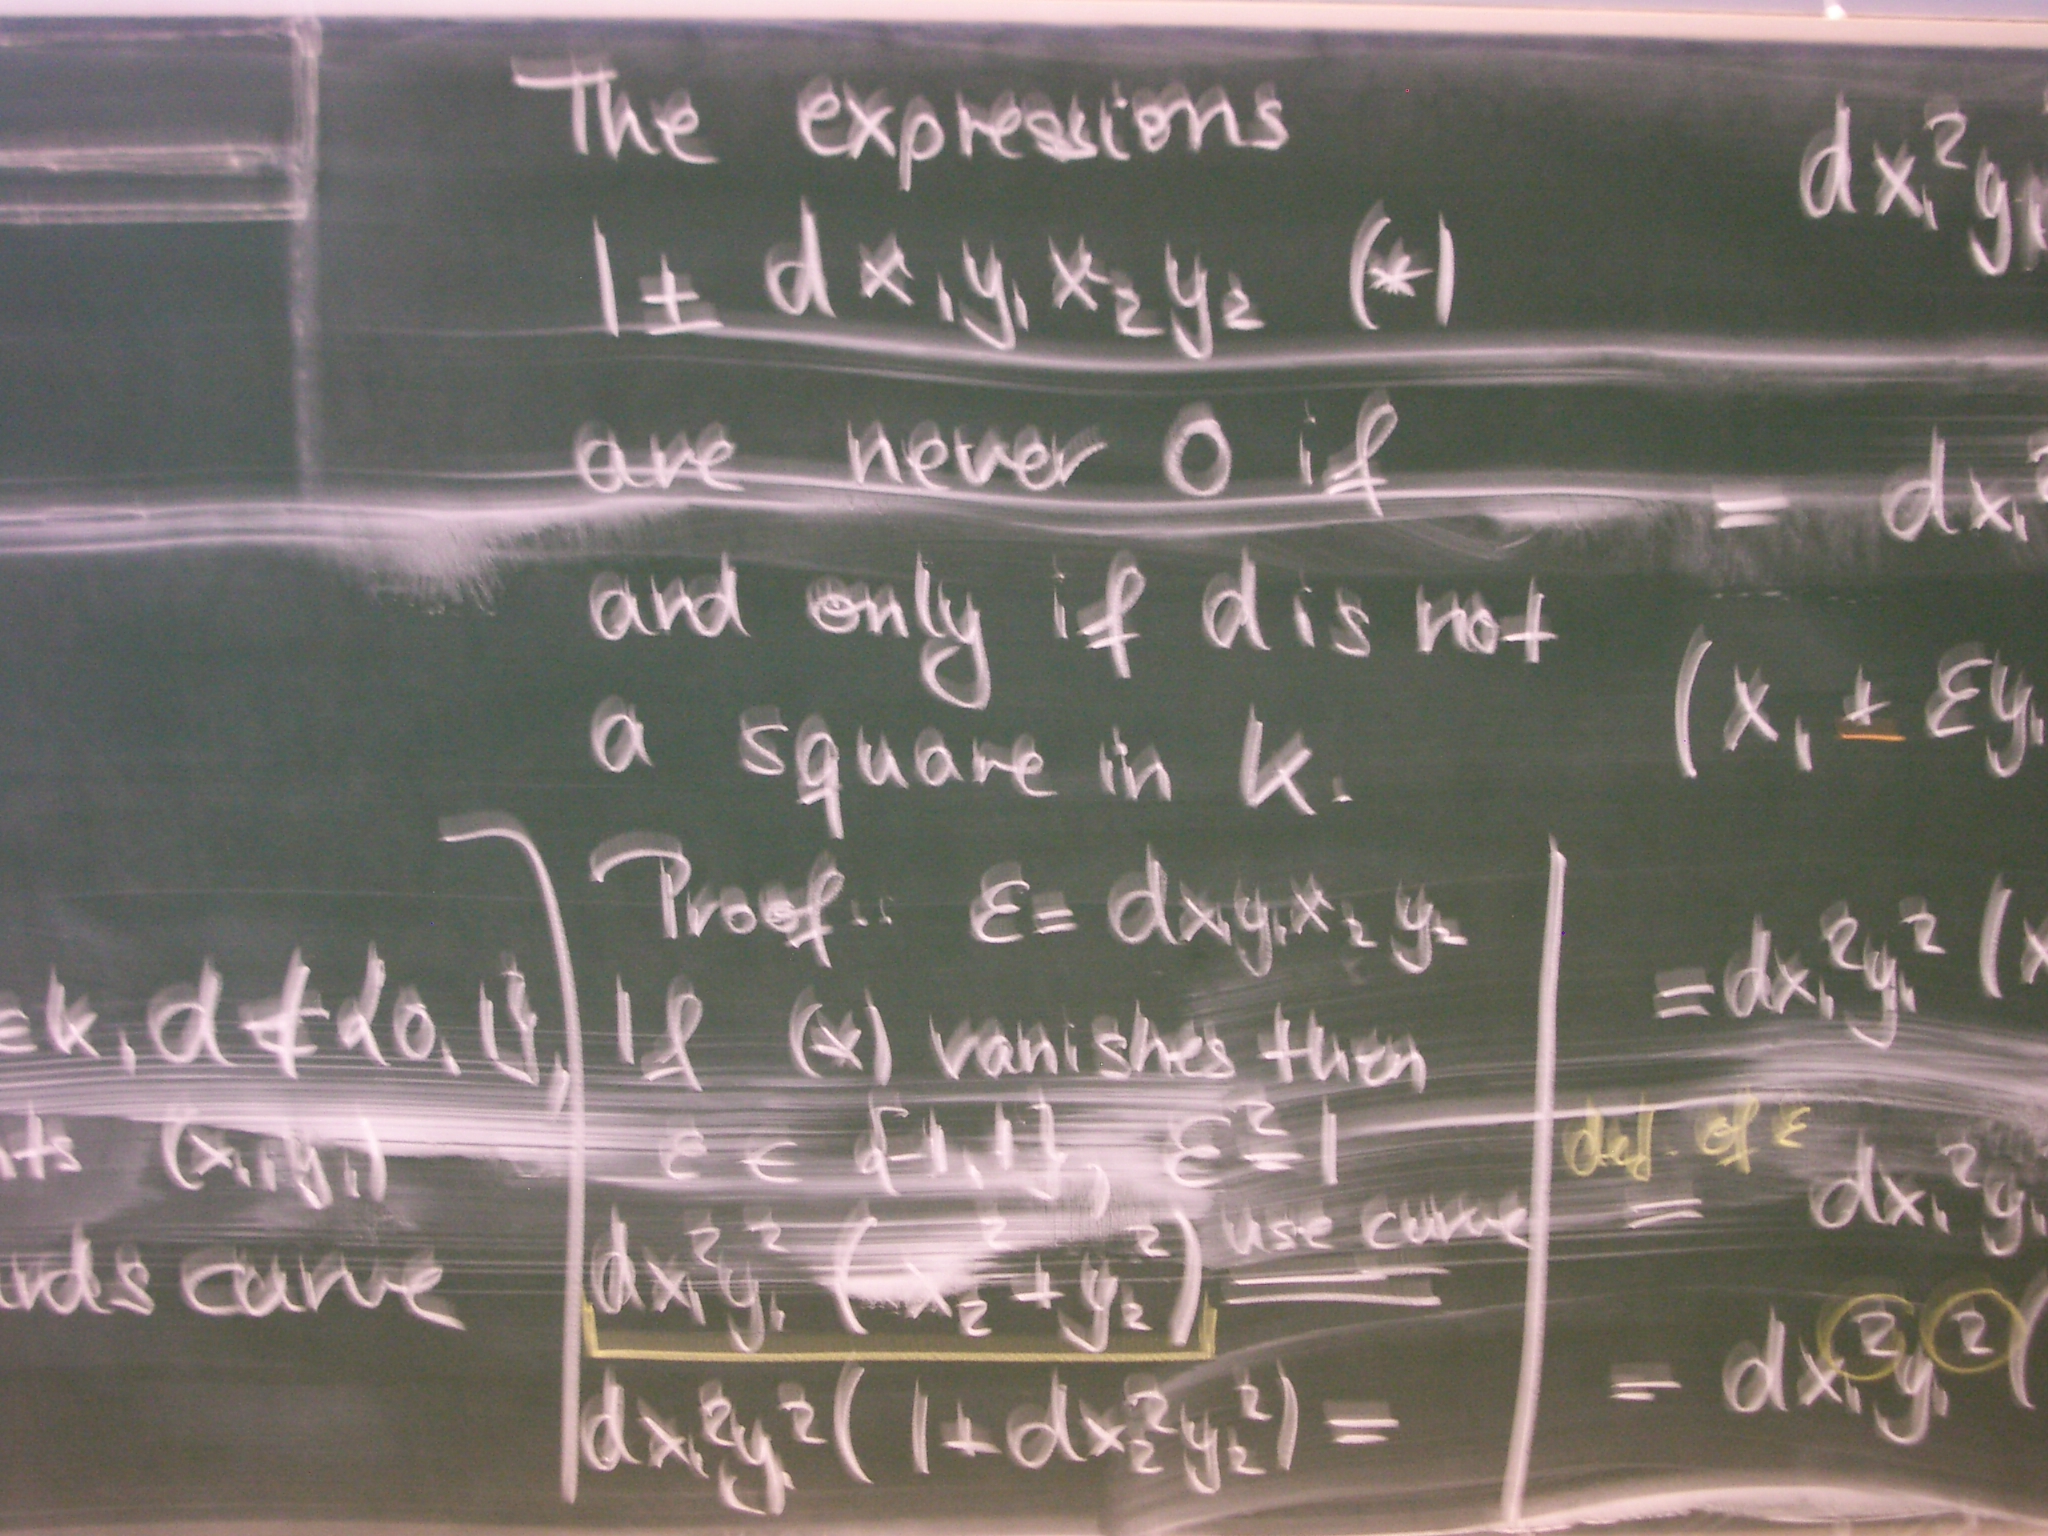 ∈k, d ∉ {0,1},
(x₁,y₁)
curve
The expressions
1 ± d x₁y₁x₂y₂ (*)
are never 0 if
and only if d is not
a square in k.
Proof: ε = dx₁y₁x₂y₂
If (*) vanishes then
ε ∈ {-1,1}, ε² = 1
dx₁²y₁² (x₂² + y₂²) use curve =
dx₁²y₁² (1 + dx₂²y₂²) =
dx₁²y₁
= dx₁²
(x₁ ± εy₁
= dx₁²y₁² (x
def. of ε
= dx₁²y₁
= dx₁²y₁² (